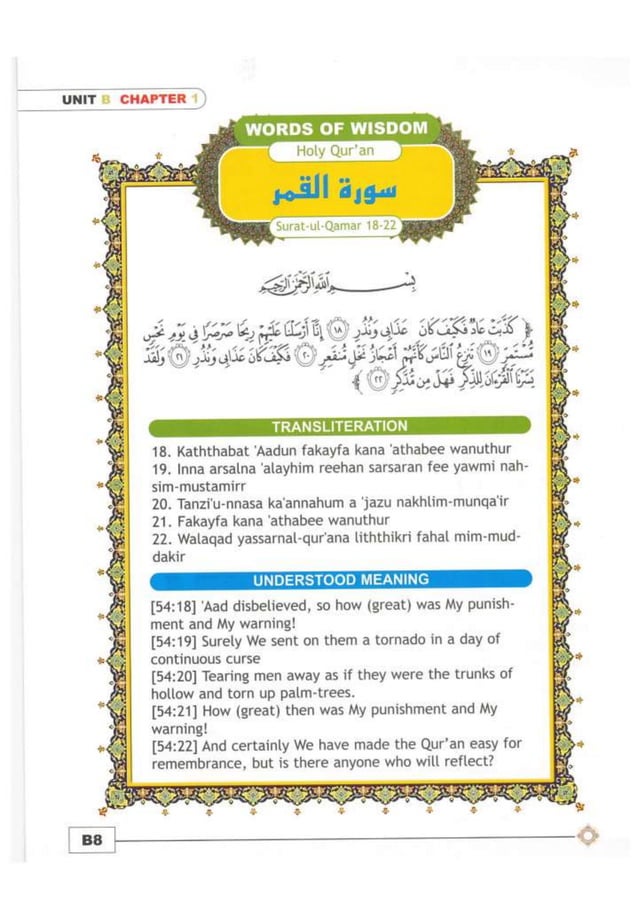 UNIT B CHAPTER 1
WORDS OF WISDOM
Holy Qur'an
سورة القمر
Surat-ul-Qamar 18-22
بِسْمِ اللَّهِ الرَّحْمَٰنِ الرَّحِيمِ
﴿ كَذَّبَتْ عَادٌ فَكَيْفَ كَانَ عَذَابِى وَنُذُرِ ١٨ إِنَّآ أَرْسَلْنَا عَلَيْهِمْ رِيحًا صَرْصَرًا فِى يَوْمِ نَحْسٍ
مُّسْتَمِرٍّ ١٩ تَنزِعُ النَّاسَ كَأَنَّهُمْ أَعْجَازُ نَخْلٍ مُّنقَعِرٍ ٢٠ فَكَيْفَ كَانَ عَذَابِى وَنُذُرِ ٢١ وَلَقَدْ
يَسَّرْنَا الْقُرْءَانَ لِلذِّكْرِ فَهَلْ مِن مُّدَّكِرٍ ٢٢ ﴾
TRANSLITERATION
18. Kaththabat 'Aadun fakayfa kana 'athabee wanuthur
19. Inna arsalna 'alayhim reehan sarsaran fee yawmi nah-
sim-mustamirr
20. Tanzi'u-nnasa ka'annahum a 'jazu nakhlim-munqa'ir
21. Fakayfa kana 'athabee wanuthur
22. Walaqad yassarnal-qur'ana liththikri fahal mim-mud-
dakir
UNDERSTOOD MEANING
[54:18] 'Aad disbelieved, so how (great) was My punish-
ment and My warning!
[54:19] Surely We sent on them a tornado in a day of
continuous curse
[54:20] Tearing men away as if they were the trunks of
hollow and torn up palm-trees.
[54:21] How (great) then was My punishment and My
warning!
[54:22] And certainly We have made the Qur'an easy for
remembrance, but is there anyone who will reflect?
B8